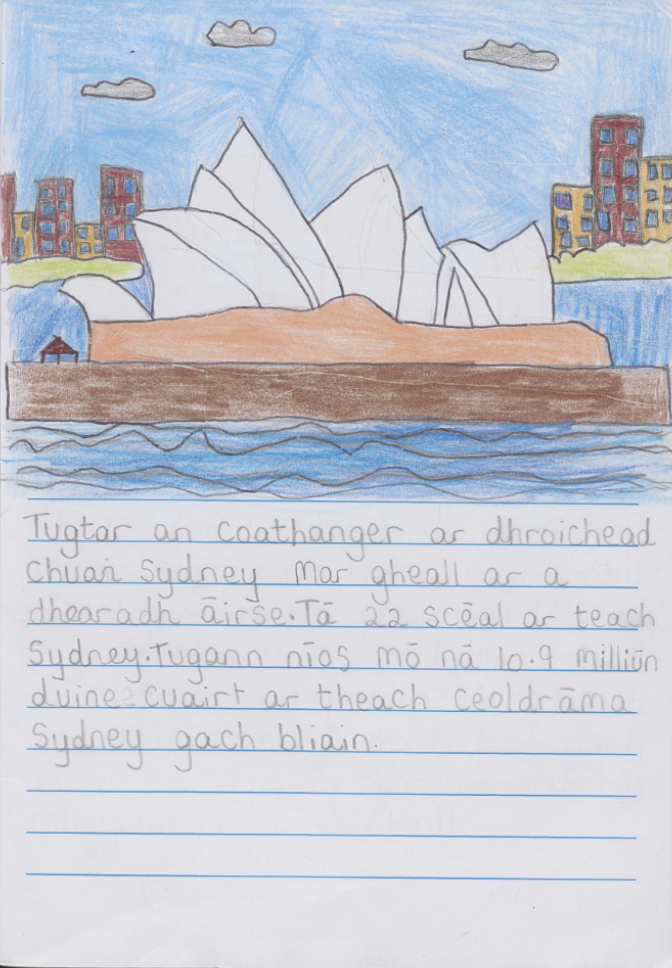 Tugtar an coathanger ar dhroichead
chuan Sydney mar gheall ar a
dhearadh áirse. Tá 22 scéal ar teach
Sydney. Tugann níos mó ná 10.9 milliún
duine cuairt ar theach ceoldráma
Sydney gach bliain.